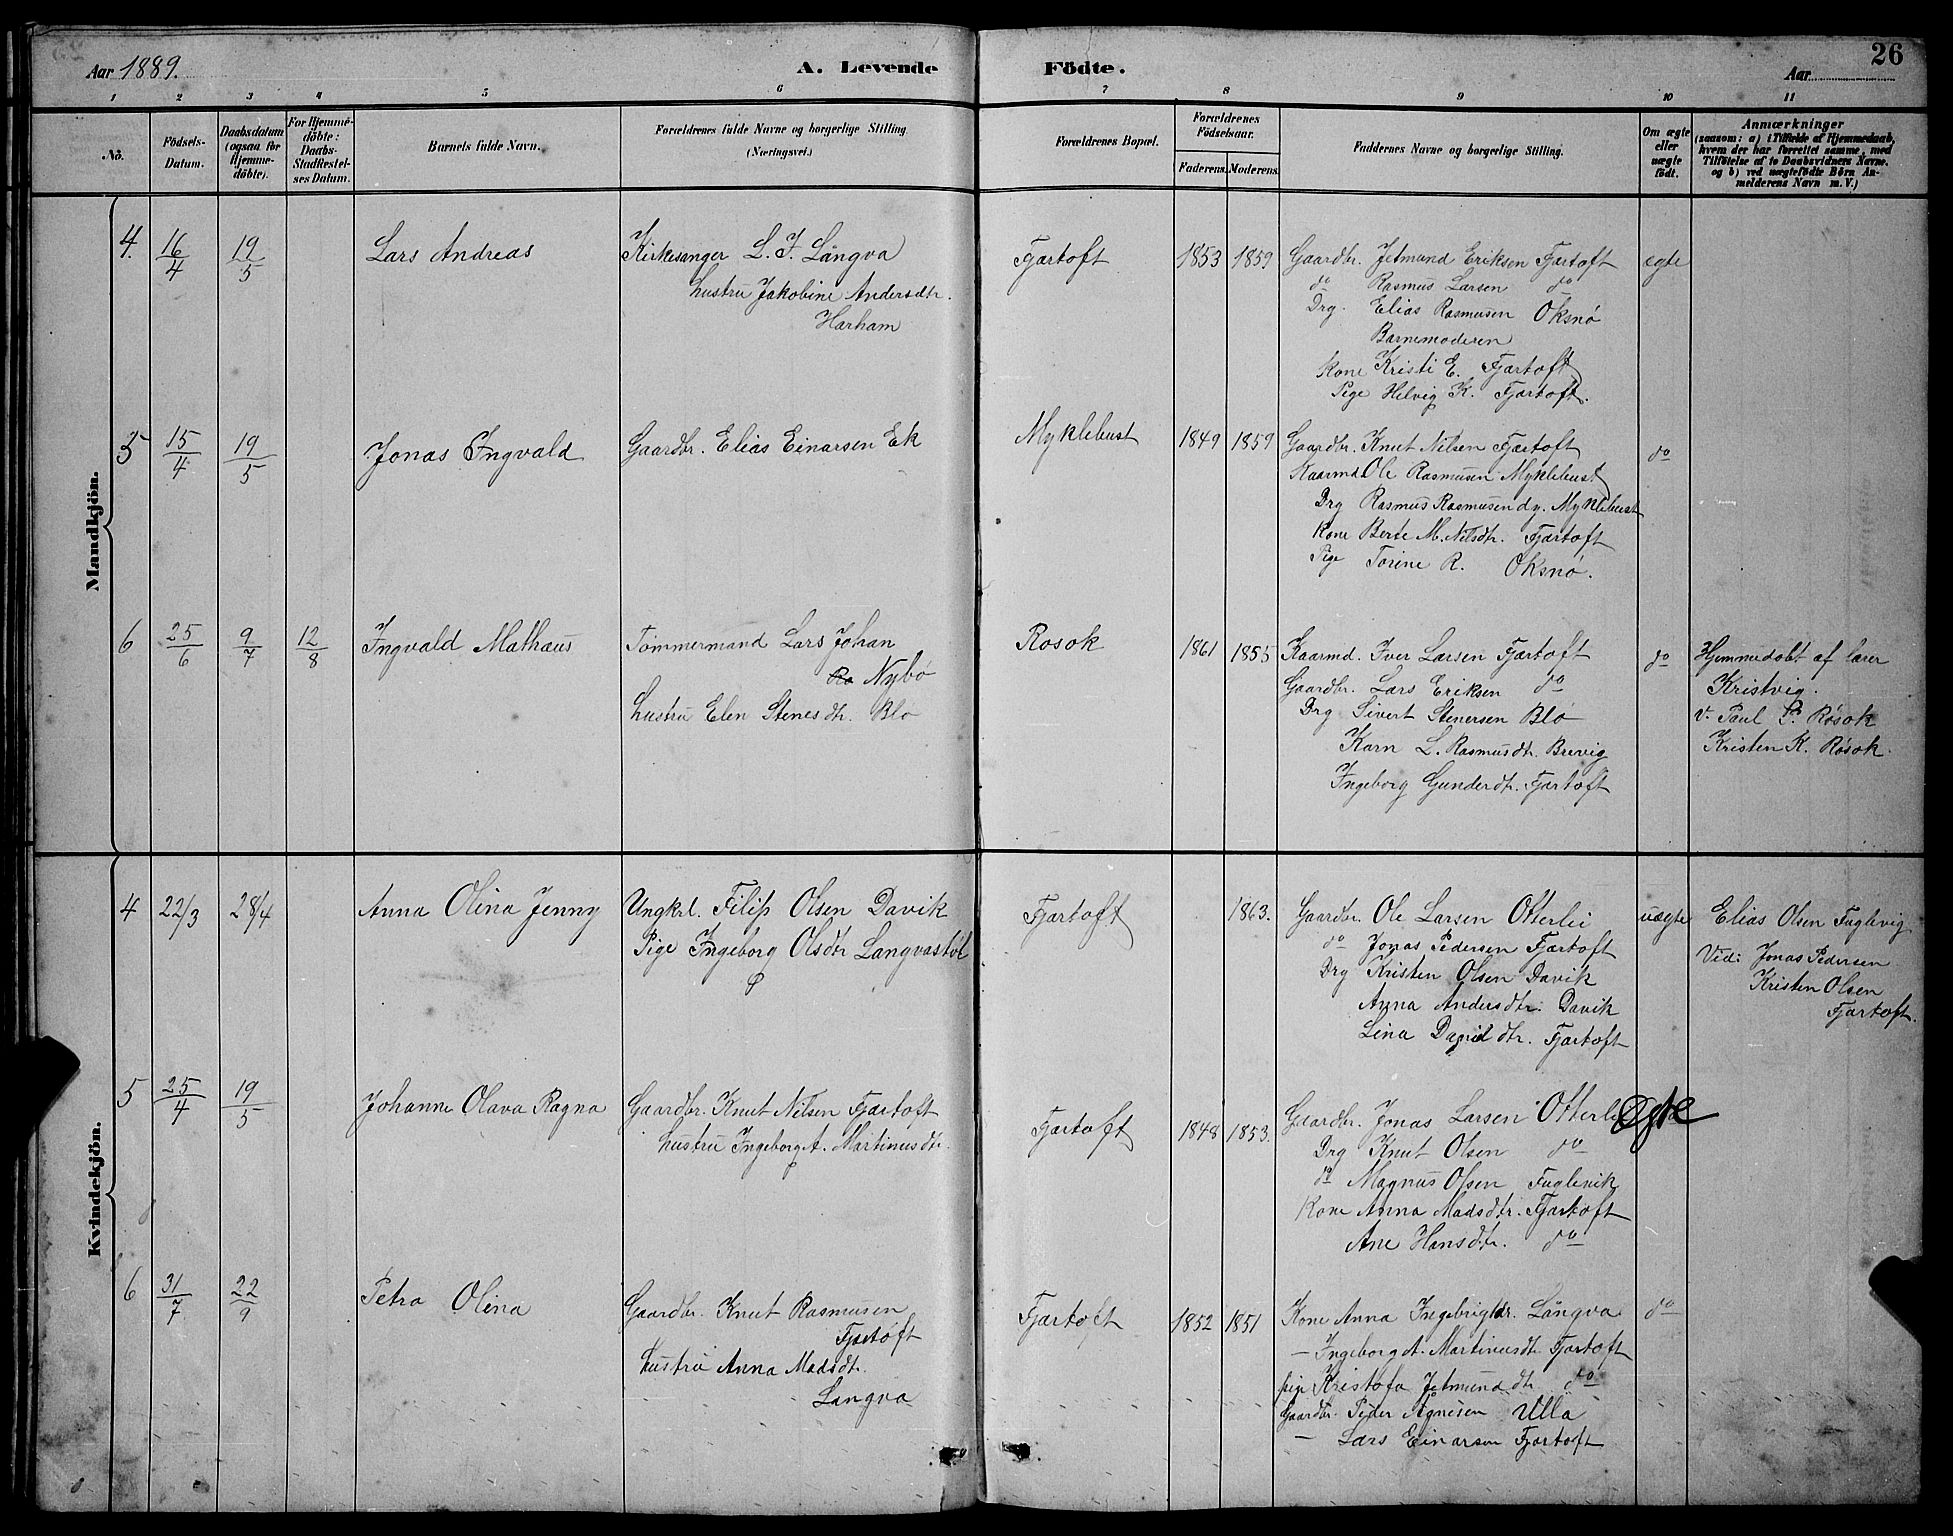 Aar 1889.
A. Levende Födte.
26
Aar
1 2 3 4 5 6 7 8 9 10 11
No.
Födsels-
Datum.
Daabsdatum
(ogsaa for
Hjemme-
döbte).
For Hjemme-
döbte:
Daabs-
Stadfæstel-
ses Datum.
Barnets fulde Navn.
Forældrenes fulde Navne og borgerlige Stilling
(Næringsvei.)
Forældrenes Bopæl.
Forældrenes
Födselsaar.
Faderens. Moderens.
Faddernes Navne og borgerlige Stilling.
Om ægte
eller
uægte
födt.
Anmærkninger
(saasom: a) i Tilfælde af Hjemmedaab,
hvem der har forrettet samme, med
Tilföielse af to Daabsvidners Navne.
og b) ved uægtefödte Börn An-
melderens Navn m. V.)
Mandkjön.
4. 16/4 19/5 Lars Andreas
Kirkesanger L. J. Långva
hustru Jakobine Andersdtr.
Harham
Fjærtoft 1853 1859
Gaardbr. Jetmund Eriksen Fjærtoft
do Rasmus Larsen do
Drg. Elias Rasmusen Oksnø
Barnemoderen
Kone Kristi E. Fjærtoft
Pige Helvig K. Fjærtoft.
egte
5 15/4 19/5 Jonas Ingvald
Gaardbr. Elias Einarsen Ek
Myklebust 1849 1859
Gaardbr. Knut Nilsen Fjærtoft
Kaarmd Ole Rasmusen Myklebust
Drg Rasmus Rasmusen d.y. Myklebust
Kone Berte M. Nilsdtr. Fjærtoft
Pige Torine R. Oksnø.
do
6 25/6 9/7 12/8 Ingvald Mathæus
Tømmermand Lars Johan
Ro Nybø
hustru Elen Stenesdtr. Blø
Rosok 1861 1855
Kaarmd. Iver Larsen Fjærtoft
Gaardbr. Lars Eriksen do
Drg Sivert Stenersen Blø
Karn L. Rasmusdtr. Brevig
Ingeborg Gunderdtr. Fjærtoft
do
Hjemmedøbt af lærer
Kristvig.
v. Paul P. Røsok
Kristen K. Røsok.
Kvindekjön.
4 22/3 28/4 Anna Olina Jenny
Ungkrl. Filip Olsen Davik
Pige Ingeborg Olsdtr Langvastøl
Fjærtoft 1863.
Gaardbr. Ole Larsen Otterlei
do Jonas Pedersen Fjærtoft
Drg Kristen Olsen Davik
Anna Andersdtr. Davik
Lina Daviddtr. Fjærtoft
uægte
Elias Olsen Fuglevig
Vid: Jonas Pedersen
Kristen Olsen
Fjærtoft.
5 25/4 19/5 Johanne Olava Ragna
Gaardbr. Knut Nilsen Fjærtoft
hustru Ingeborg A. Martinusdtr.
Fjærtoft 1848 1853.
Gaardbr. Jonas Larsen Otterlei
Drg Knut Olsen do
do Magnus Olsen Fuglevik
Kone Anna Madsdtr. Fjærtoft
Ane Hansdtr. do
Egte
6 31/7 22/9 Petra Olina
Gaardbr. Knut Rasmusen
Fjærtoft
hustru Anna Madsdt.
Langva
Fjærtoft 1852 1851
Kone Anna Ingebrigtdr. Långva
— Ingeborg A. Martinusdt Fjærtoft
pige Kristofa Jetmunddtr do
Gaardbr. Peder Agnesen Ulla
— Lars Einarsen Fjærtoft
do